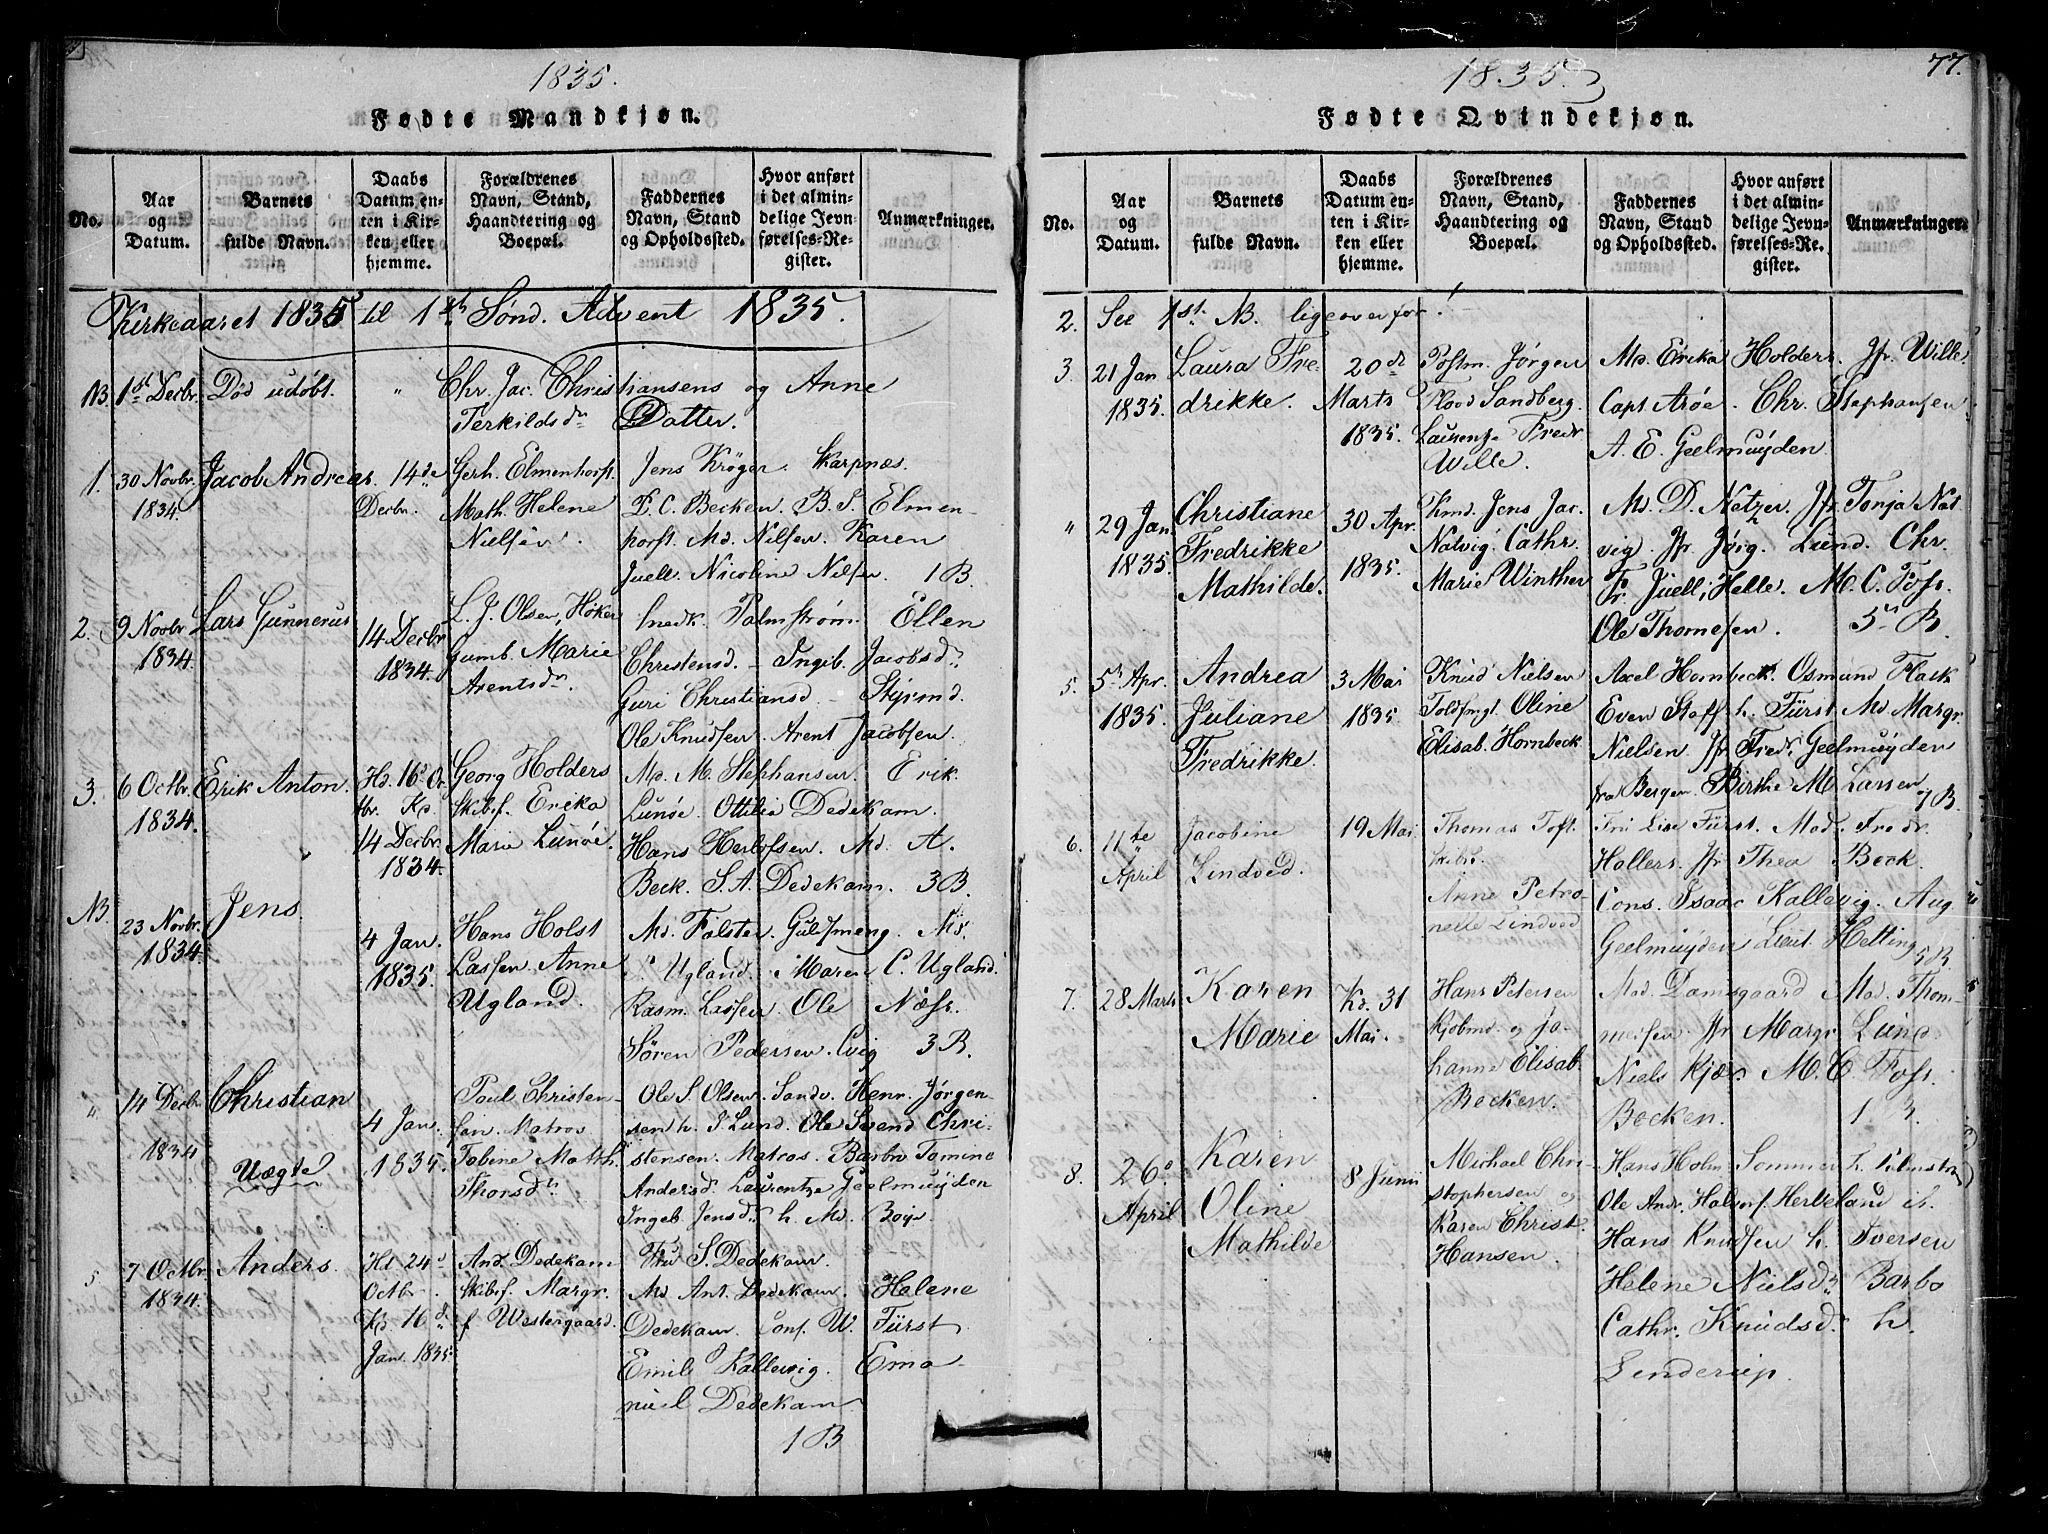 1835.
Fødte Mandkjøn.
No.
Aar og Datum.
Barnets fulde Navn.
Daabs Datum enten i Kirken eller hjemme.
Forældrenes Navn, Stand, Haandtering og Boepæl.
Faddernes Navn, Stand og Opholdssted.
Hvor anført i det almindelige Jevnførelses-Register.
Anmærkninger.
Kirkeaaret 1835 til 1st Sønd. Advent 1835.
NB. 1st Decbr. Død udøbt. " Chr. Jac. Christiansens og Anne
Terkildsdr Datter.
1. 30 Novbr. Jacob Andreas. 14de Gerh. Elmenhorst. Jens Krøger. Karpnæs.
1834. Decbr. Math. Helene P. C. Becken. B. S. Elmen-
Nielsen. horst. Md. Nilsen. Karen
Juell. Nicoline Nilsen. 1 B.
2. 9 Novbr Lars Gunnerus 14 Decbr L. J. Olsen, Høker Snedk. Palmstrøm. Ellen
1834. 1834. Gumb. Marie Christensd. - Ingeb. Jacobsd.
Arentsdr. Guri Christiansd. - Styrmd.
Ole Knudsen. Arent Jacobsen.
3. 6 Octbr. Erik Anton. Hd. 16 Oc Georg Holders Md. M. Stephansen. Erik
1834. tbr. Kd. Skibsf. Erika Lunøe. Ottilia Dedekam.
14 Decbr. Marie Lunøe. Hans Herlofsen. Md. A.
1834. Beck. S. A. Dedekam. 3 B.
NB. 23 Novbr. Jens. 4 Jan. Hans Holst Md. Falster. Guldsmeng. Md.
1834. 1835. Lassen. Anne Ugland. Maren C. Ugland.
Ugland. Rasm. Lassen Ole Næss.
Søren Pedersen. 3 B.
" 14 Decbr. Christian 4 Jan. Poul Christen- Ole S. Olsen. Sandv. Henr. Jørgen-
sen. Matros sen h. S. Lund. Ole Svend Chri-
1834 Uægte 1835. Tobine Math. stensen. Matros. Barbr Tomine
Thorsdr. Andersd. Laurentze Geelmuyden
Ingeb. Jensd. h. Md. Boye.
5 7 Octbr. Anders. Hd. 24d And. Dedekam Fru S. Dedekam.
1834. Octbr. Skibsf. Margr. Md. Ant. Dedekam. Helene
Kd. 16d f Westergaard. Dedekam. Cons. W. Fürst
Jan. 1835 Emil Kallevig. Ema-
nuel Dedekam.
1 B
1835.
77.
Fødte Qvindekjøn.
No.
Aar og Datum.
Barnets fulde Navn.
Daabs Datum enten i Kirken eller hjemme.
Forældrenes Navn, Stand, Haandtering og Boepæl.
Faddernes Navn, Stand og Opholdssted.
Hvor anført i det almindelige Jevnførelses-Register.
Anmærkninger.
2. See 1st. NB. ligeoverfor!
3. 21 Jan Laura Fre- 20de Postm. Jørgen Md. Erika Holders. Jfr. Wille.
1835. drikke. Marts Flood Sandberg. Capt. Arøe. Chr. Stephansen
1835. Laurentze Fredr. A. E. Geelmuyden
Wille.
" 29 Jan. Christiane 30 Apr. Kmd. Jens Jac. Md. D. Netzer. Jfr. Tonja Nat
1835. Fredrikke 1835. Natvig. Cathr. vig. Jfr. Lund. Chr.
Mathilde. Marie Winther Fr. Juell, Helle. M. C. Foss.
Ole Thomesen. 5 B.
5. 5 Apr. Andrea 3 Mai Knud Nielsen Axel Hornbeck. Osmund Flack
1835. Juliane 1835. Toldfmgt. Oline Even Steff h. Fürst Md. Margr.
Fredrikke. Elisab. Hornbeck Nielsen Jfr. Fredr. Geelmuyden
fra Bergen. Birthe M. Larsen 7 B.
6. 11te Jacobine 19 Mai Thomas Toft. Fru Lise Fürst. Mad. Fredr.
April Lindved. Hollers. Jfr. Thea Beck.
Anne Petro- Cons. Isaac Kallevig. Aug.
nelle Lindved Geelmuyden Lieut. Hetting. 5 B.
7. 28 Marts Karen Kd. 31 Hans Petersen Mad. Damsgaard Mad. Thom-
Marie Mai. Kjøbmd. og Jo- mesen. Jfr. Margr. Lund
hanne Elisab. Niels Kjær. M. C. Foss.
Becken. Becken. 1 B.
8. 26 Karen 8 Junii Michael Chri- Hans Holm Sommer h.
April Oline stophersen og Ole Andr. Halvors. Herbeland ib.
Mathilde Karen Christ. Hans Knudsen h. Iversen
Hansen. Helene Nielsd. Barbo
Cathr. Knudsd. h.
Lenderup.